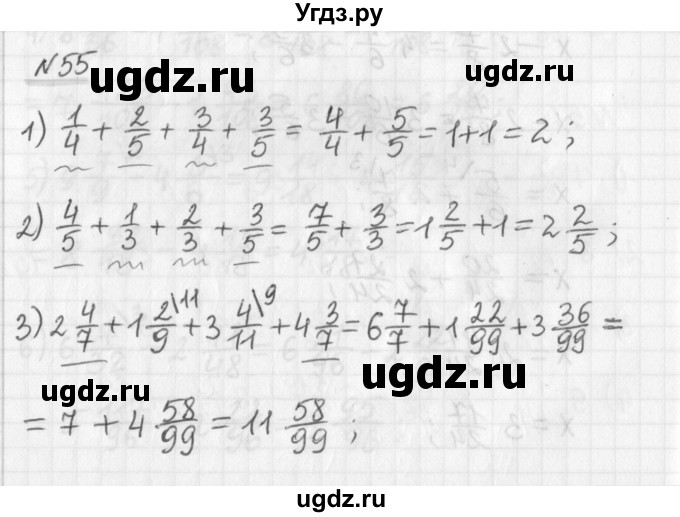 Угдз.ру
№55
ugdz.ru ugdz.ru
1) 1/4 + 2/5 + 3/4 + 3/5 = 4/4 + 5/5 = 1+1 = 2;
2) 4/5 + 1/3 + 2/3 + 3/5 = 7/5 + 3/3 = 1 2/5 + 1 = 2 2/5;
3) 2 4/7 + 1 2/9 \11 + 3 4/11 \9 + 4 3/7 = 6 7/7 + 1 22/99 + 3 36/99 =
ugdz.ru ugdz.ru
= 7 + 4 58/99 = 11 58/99;
ugdz.ru